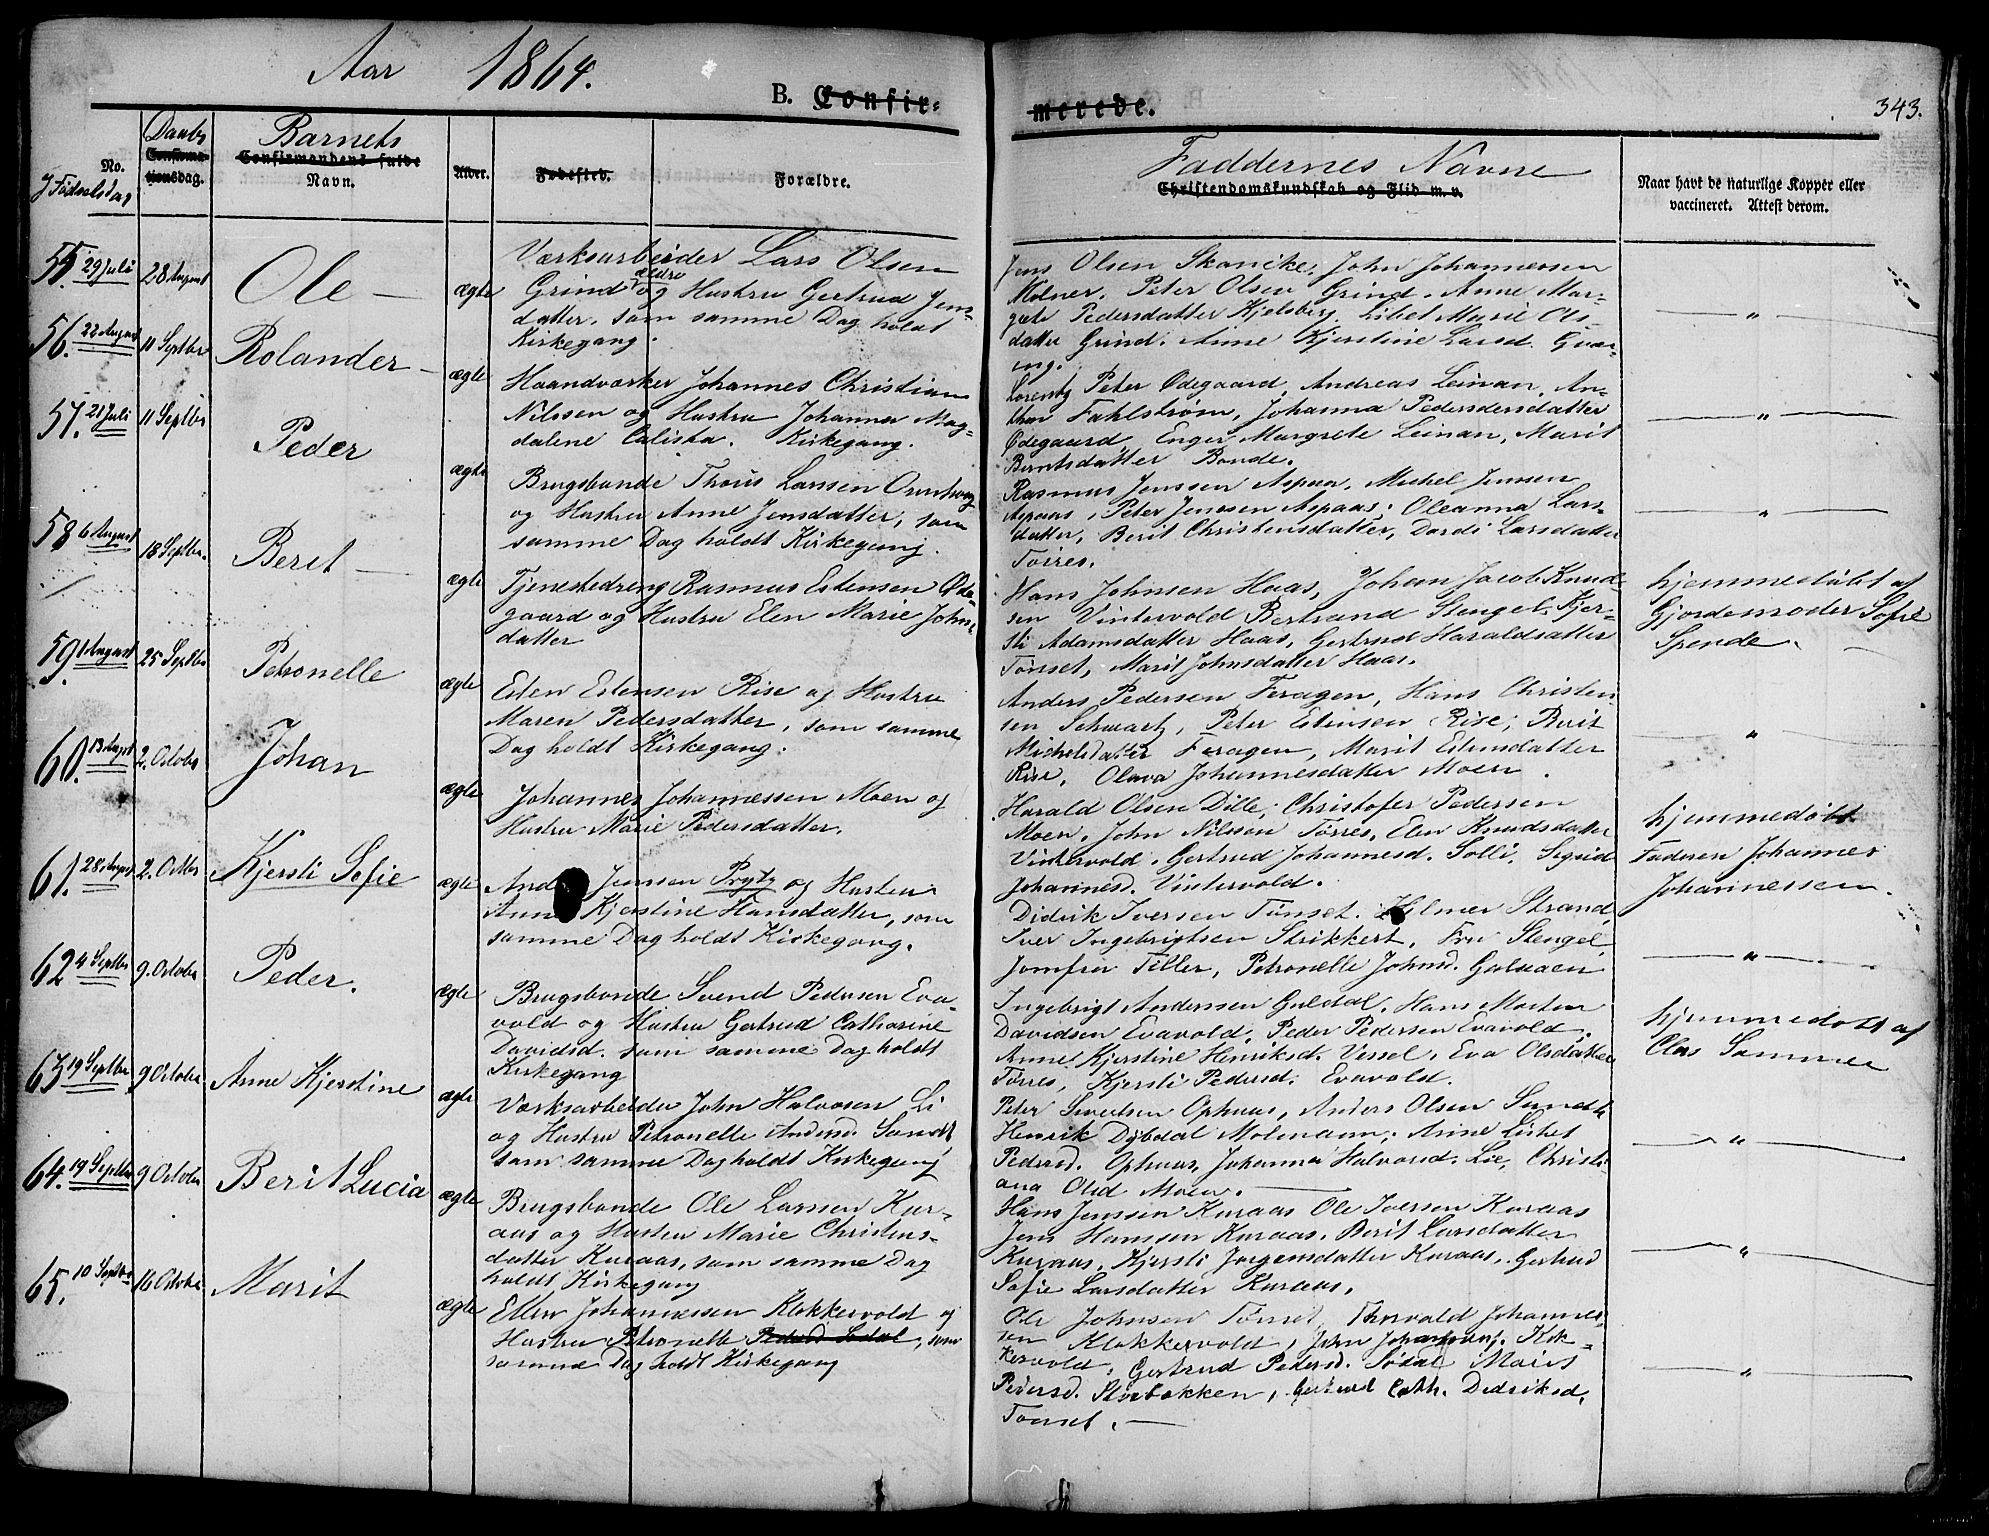 Aar 1864.
B. Confir-
merede.
343.
No.
Fødselsdag
Daabs
Confirma-
tionsdag.
Barnets
Confirmandens fulde
Navn.
Alder.
Fødested.
Forældre.
Faddernes Navne
Christendomskundskab og Flid m. v.
Naar havt de naturlige Kopper eller
vaccineret. Attest derom.
55. 29 Juli
28 August
Ole —
ægte
Værksarbeider Lars Olsen
Grind ældre og Hustru Gertrud Jens-
datter, som samme Dag holdt
Kirkegang.
Jens Olsen Skancke, John Johannessen
Molner. Peter Olsen Grind. Anne Mar-
grete Pedersdatter Kjelsberg, Lisbet Marie Ols-
datter Grind. Anne Kjerstine Larsd.
ing.
"
56. 22 August
11 Septbr
Rolander —
ægte
Haandværker Johannes Christian
Nilssen og Hustru Johanna Mag-
dalene Caliska. Kirkegang.
Lorentz Peter Ødegaard, Andreas Leinan, An-
thon Fahlstrøm, Johanna Pedersdersdatter
Ødegaard, Enger Margrete Leinan, Marit
Berntsdatter Bonde.
"
57. 21 Juli
11 Septbr
Peder
ægte
Brugsbonde Thøus Larsen
og Hustru Anne Jensdatter, som
samme Dag holdt Kirkegang.
Rasmus Jenssen Aspaas, Michel Jensen
Aspaas, Peter Jenssen Aspaas; Oleanna Lars-
datter, Berit Christensdatter, Dordi Larsdatter
Torres.
"
58 6 August
18 Septbr.
Beret —
ægte
Tjenestedreng Rasmus Estensen Øde-
gaard og Hustru Elen Marie Johns-
datter
Hans Johnsen Haas, Johan Jacob Knud-
sen Vintervold Bertrand Stengel, Kjer-
sti Adamsdatter Haas, Gertrud Haraldsdatter
Tønset, Marit Johnsdatter Haas.
hjemmedøbt af
Gjordemoder Sofie
Spende.
59. 1 August
25 Septbr
Petronelle
ægte
Esten Estensen Rise og Hustru
Maren Pedersdatter, som samme
Dag holdt Kirkegang.
Anders Pedersen Feragen, Hans Christen-
sen Schwart, Peter Estensen Rise, Berit
Michelsdatter Feragen, Marit Estensdatter
Rise, Olava Johannesdatter Moen.
"
60. 13 August
2. October
Johan
ægte
Johannes Johannessen Moen og
Hustru Marie Pedersdatter.
Harald Olsen Dille, Christofer Pedersen
Moen, John Nilsson Torres, Elen Knudsdatter
Vintervold. Gertrud Johannesd. Solli, Sigrid
Johannesd. Vintervold.
hjemmedøbt
Faderen Johannes
Johannessen.
61. 28 August
2. Octbr
Kjersti Sofie
ægte
Jensen Prytz og Hustru
Kjerstine Hansdatter, som
samme Dag holdt Kirkegang.
Didrik Iversen Tønset. Hilmer Strand,
Iver Ingebrigtsen Strikkert, Fru Stengel,
Jomfru Tiller, Petronelle Johnsd. Galvaen
"
62 4 Septbr
9. October
Peder.
ægte
Brugsbonde Svend Pedersen Eva-
vold og Hustru Gertrud Catharine
Davidsd. som samme Dag holdt
Kirkegang
Ingebrigt Andersen Guldal, Hans Morten
Davidsen Evavold, Peder Pedersen Evavold.
Anne Kjerstine Henriksd. Vessel, Eva Olsdatter
Torres, Kjersti Pedersd. Evavold.
hjemmedøbt af
Claus Sommer
63 19 Septbr
9 October
Anne Kjerstine
ægte
Værksarbeider John Halvorsen Li
og Hustru Petronelle Andersd. Sundt
som samme Dag holdt Kirkegang
Peter Sivertsen Ophuus, Anders Olsen Sundt
Henrik Dybdal Molmann, Anne Lisbet
Pedersd. Ophuus, Johanna Halvorsd. Lie, Christi-
ana Olsd Moen.
"
64. 19 Septbr
9 October
Berit Lucia
ægte
Brugsbonde Ole Larssen Kur-
aas og Hustru Marie Christens-
datter Kuraas, som samme Dag
holdt Kirkegang
Hans Jenssen Kuraas Ole Iversen Kuraas
Jens Hanssen Kuraas, Berit Larsdatter
Kuraas, Kjersti Jørgensdatter Kuraas, Gertrud
Sofie Larsdatter Kuraas,
"
65. 10 Septbr
16 October
Marit
ægte
Ellev Johannessen Klokkervold og
Hustru Petronelle Pedersd Sødal, som
samme Dag holdt Kirkegang
Ole Johnsen Tønset, Thorvald Johannes-
sen Klokkervold, John Johannes. Klok-
kervold, Gertrud Pedersd. Sødal Marit
Pedersd. Storbakken, Gertrud Cath. Dedriksd,
Tønset.
"